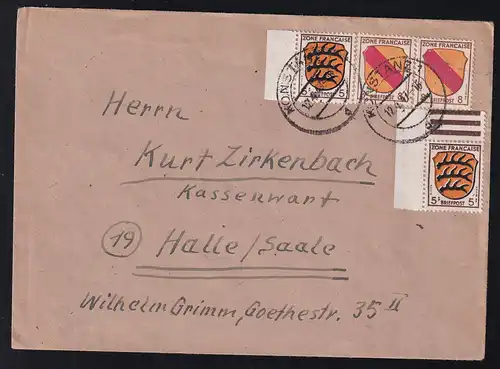 ZONE FRANÇAISE ZONE FRANÇAISE ZONE FRANÇAISE
5 5 8
BRIEFPOST
KONSTANZ
ZONE FRANÇAISE
5 f BRIEFPOST 5 f
Herrn
Kurt Zirkenbach
Kassenwart
19 Halle/Saale
Wilhelm Grimm, Goethestr. 35 II